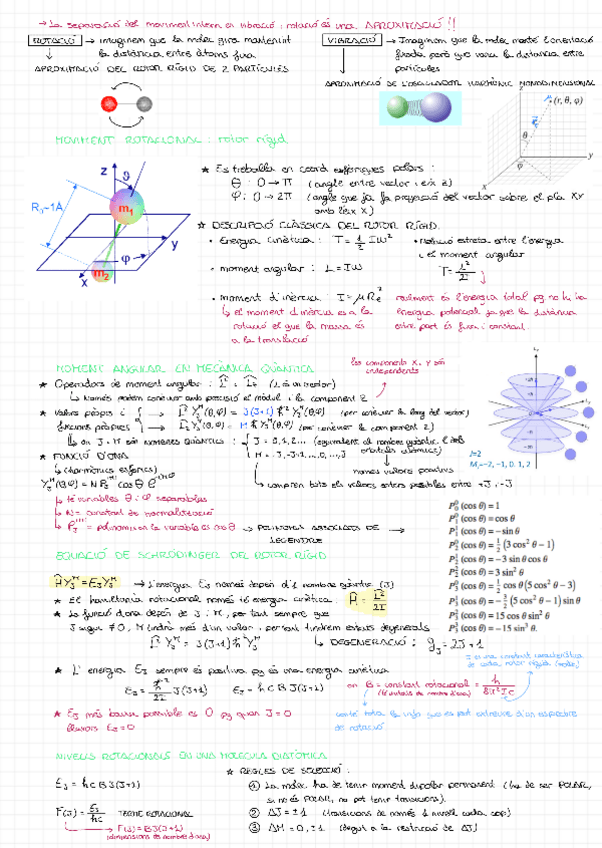 → La separació del moviment intern en vibració i rotació és una APROXIMACIÓ!!
ROTACIÓ → imaginem que la molec gira mantenint la distància entre àtoms fixa
APROXIMACIÓ DEL ROTOR RÍGID DE 2 PARTÍCULES
VIBRACIÓ → Imaginem que la molec manté l'orientació fixada però que varia la distància entre partícules
APROXIMACIÓ DE L'OSCIL·LADOR HARMÒNIC MONODIMENSIONAL
(r, θ, φ)
MOVIMENT ROTACIONAL: rotor rígid
z
ϑ
R₀~1Å
m₁
y
φ
x
m₂
★ Es treballa en coord esfèriques polars:
θ: 0 → π (angle entre vector i eix z)
φ: 0 → 2π (angle que fa projecció del vector sobre el pla XY amb l'eix X)
★ DESCRIPCIÓ CLÀSSICA DEL ROTOR RÍGID
• Energia cinètica: T = 1/2 Iω²
• Relació estreta entre l'energia i el moment angular
T = L²/2I
• moment angular: L = Iω
• moment d'inèrcia: I = μRe²
↳ el moment d'inèrcia és a la rotació el que la massa és a la translació
realment és l'energia total pq no hi ha energia potencial ja que la distància entre part és fixa i constant.
MOMENT ANGULAR EN MECÀNICA QUÀNTICA
les components X, Y són independents
★ Operadors de moment angular: L̂ i L̂z (L és un vector)
↳ Només podem conèixer amb precisió el mòdul i la component z
★ Valors pròpis i funcions pròpies
→ L̂² Y_J^M(θ,φ) = J(J+1) ħ² Y_J^M(θ,φ) (per conèixer la long del vector)
→ L̂z Y_J^M(θ,φ) = M ħ Y_J^M(θ,φ) (per conèixer la component z)
↳ on J i M són NOMBRES QUÀNTICS:
J = 0, 1, 2...
M = -J, -J+1, ..., 0, ..., J
només valors positius
↳ comprèn tots els valors enters possibles entre +J i -J
★ FUNCIÓ D'ONA
↳ (harmònics esfèrics)
↳ té variables θ i φ separables
↳ N = constant de normalització
→ POLINOMIS ASSOCIATS DE LEGENDRE
J=2
M_J=-2, -1, 0, 1, 2
P₀⁰ (cos θ) = 1
P₁⁰ (cos θ) = cos θ
P₁¹ (cos θ) = −sin θ
P₂⁰ (cos θ) = 1/2 (3 cos² θ − 1)
P₂¹ (cos θ) = −3 sin θ cos θ
P₂² (cos θ) = 3 sin² θ
P₃⁰ (cos θ) = 1/2 cos θ (5 cos² θ − 3)
P₃¹ (cos θ) = −3/2 (5 cos² θ − 1) sin θ
P₃² (cos θ) = 15 cos θ sin² θ
P₃³ (cos θ) = −15 sin³ θ.
EQUACIÓ DE SCHRÖDINGER DEL ROTOR RÍGID
ĤY_J^M = E_J Y_J^M → L'energia E_J només depèn del nombre quàntic (J)
★ El hamiltonià rotacional només té energia cinètica: Ĥ = L̂²/2I
★ La funció d'ona depèn de J i M, per tant sempre que J sigui ≠ 0, M tindrà més d'un valor i per tant tindrem estats degenerats
L̂² Y_J^M = J(J+1) ħ² Y_J^M
↳ DEGENERACIÓ: g_J = 2J+1
★ L'energia E_J sempre és positiva pq és una energia cinètica
E_J = ħ²/2I J(J+1)
E_J = h c B J(J+1)
on B = constant rotacional = h/8π²Ic
★ E_J més baixa possible és 0 pq quan J = 0 llavors E_J = 0
conté tota la info que es pot extreure d'un espectre de rotació
NIVELLS ROTACIONALS EN UNA MOLÈCULA DIATÒMICA
E_J = h c B J(J+1)
F(J) = E_J/hc TERME ROTACIONAL
→ F(J) = BJ(J+1)
(dimensions de nombre d'ona)
★ REGLES DE SELECCIÓ:
① La molec ha de tenir moment dipolar permanent (ha de ser POLAR, si no és POLAR, no pot tenir transicions).
② ΔJ = ±1 (transicions de només 1 nivell cada cop)
③ ΔM = 0, ±1 (degut a la restricció de ΔJ)